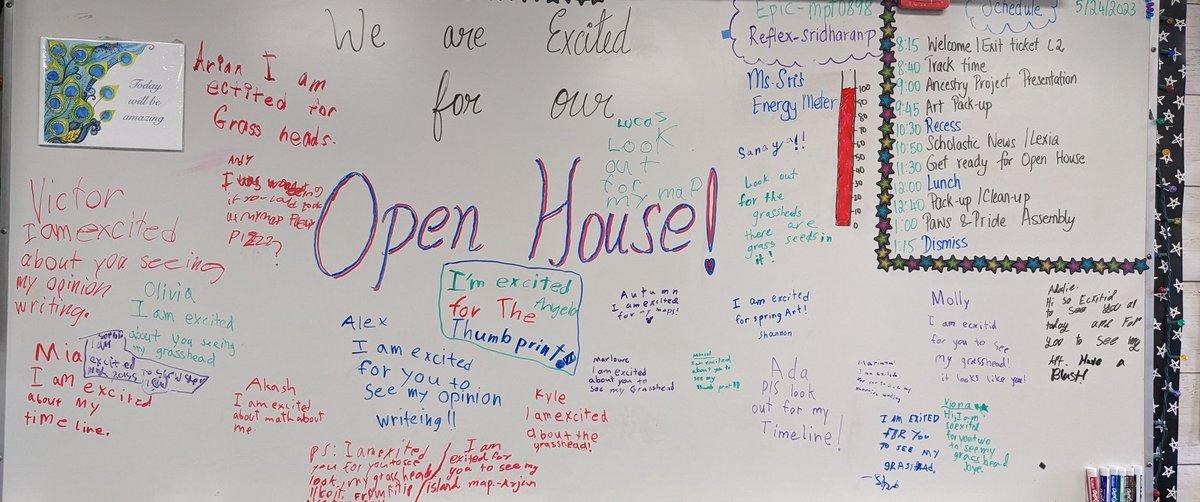 We are Excited
for our
Open House!
Today
will be
amazing
Arian I am
ectited for
Grass heads.
Victor
I am excited
about you seeing
my opinion
writing.
Olivia
I am excited
about you seeing
my grasshead
Mia
I am excited
about My
time line.
Akash
I am excited
about math about
me.
Alex
I am excited
for you to
see my opinion
writeing!!
I'm excited
for The Angela
Thumbprint
LUCAS
LOOK
out
for
my map
Autumn
I am excited
Marlowe
I am excited
about you to
see my Grasshead
I am excited
about you to
see my
Thumb print!!!
Kyle
I am excited
about the
grasshead!
PS: I am exited
you for you to see
I am
exited for
you to see my
Island map-Arjun
Epic-mpt0898
Reflex-sridharanp
Ms. Sri's
Energy Meter
100
90
80
70
60
50
40
30
20
10
0
Sanaya!!
Look out
for the
grassheds
there are
grass seeds in
it!
I am excited
for spring Art!
Shannon
Ada
Pls look
out for my
Timeline!
Molly
I am ecitid
for you to see
my grasshead!
it looks like you!
I AM EXITED
FOR YOU
TO SEE MY
Viona
Hi, I am
so exited
for you two
to see my
grasshead
bye.
Hi so Ecxitid
to see you at
today and For
you to see my
Art. Have a
Blast!
Schedule
5/24/2023
8:15 Welcome/Exit ticket L2
8:40 Track time
9:00 Ancestry Project Presentation
9:45 Art Pack-up
10:30 Recess
10:50 Scholastic News/Lexia
11:30 Get ready for Open House
12:00 Lunch
12:40 Pack-up/Clean-up
1:00 Paws & Pride Assembly
1:15 Dismiss